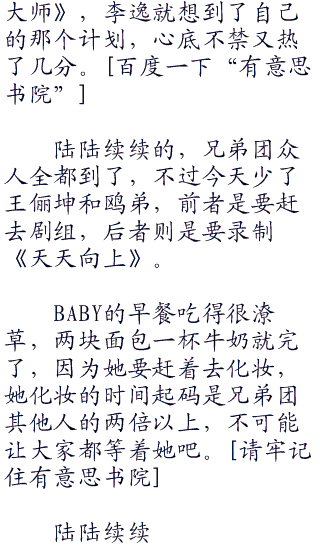 大师》，李逸就想到了自己
的那个计划，心底不禁又热
了几分。[百度一下“有意思
书院”]
陆陆续续的，兄弟团众
人全都到了，不过今天少了
王俪坤和鸥弟，前者是要赶
去剧组，后者则是要录制
《天天向上》。
BABY的早餐吃得很潦
草，两块面包一杯牛奶就完
了，因为她要赶着去化妆，
她化妆的时间起码是兄弟团
其他人的两倍以上，不可能
让大家都等着她吧。[请牢记
住有意思书院]
陆陆续续